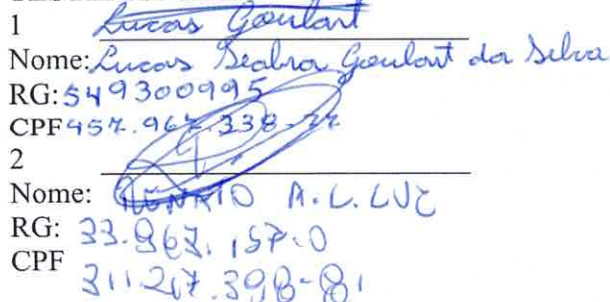 1 Lucas Goulart
Nome: Lucas Seabra Goulart da Silva
RG: 549300995
CPF 457.967.338-77
2
Nome: RENATO A.L. LUZ
RG: 33.967.157.0
CPF
311.217.398-81